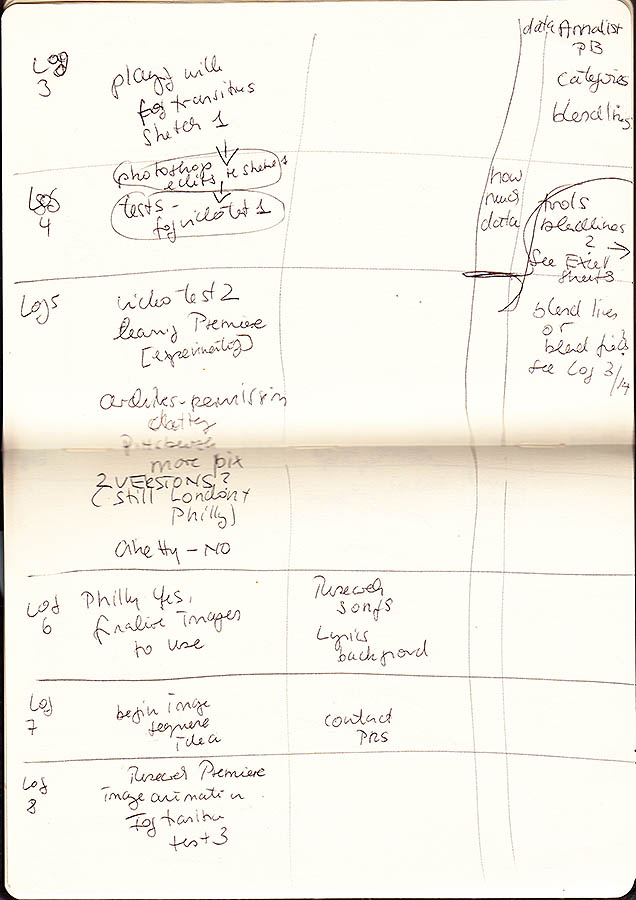 Log
3
playing with
fog transitions
sketch 1
data
Annalist
PB
categories
blendlines
photoshop
edits, re sketch 1
Log
4
tests -
fog video test 1
how
much
data
tools
bleedlines
?
See Excel
sheets
Log 5
video test 2
learning Premiere
[experimenting]
blend lines
or
blend fields?
see Log 3/14
archives - permission
more pix
2 VERSIONS?
(still London +
Philly)
Ghetty - NO
Log
6
Philly Yes,
finalise images
to use
Research
songs
Lyrics
background
Log
7
begin image
sequence
idea
contact
PRS
Log
8
Research Premiere
image animation
Fog transition
test 3